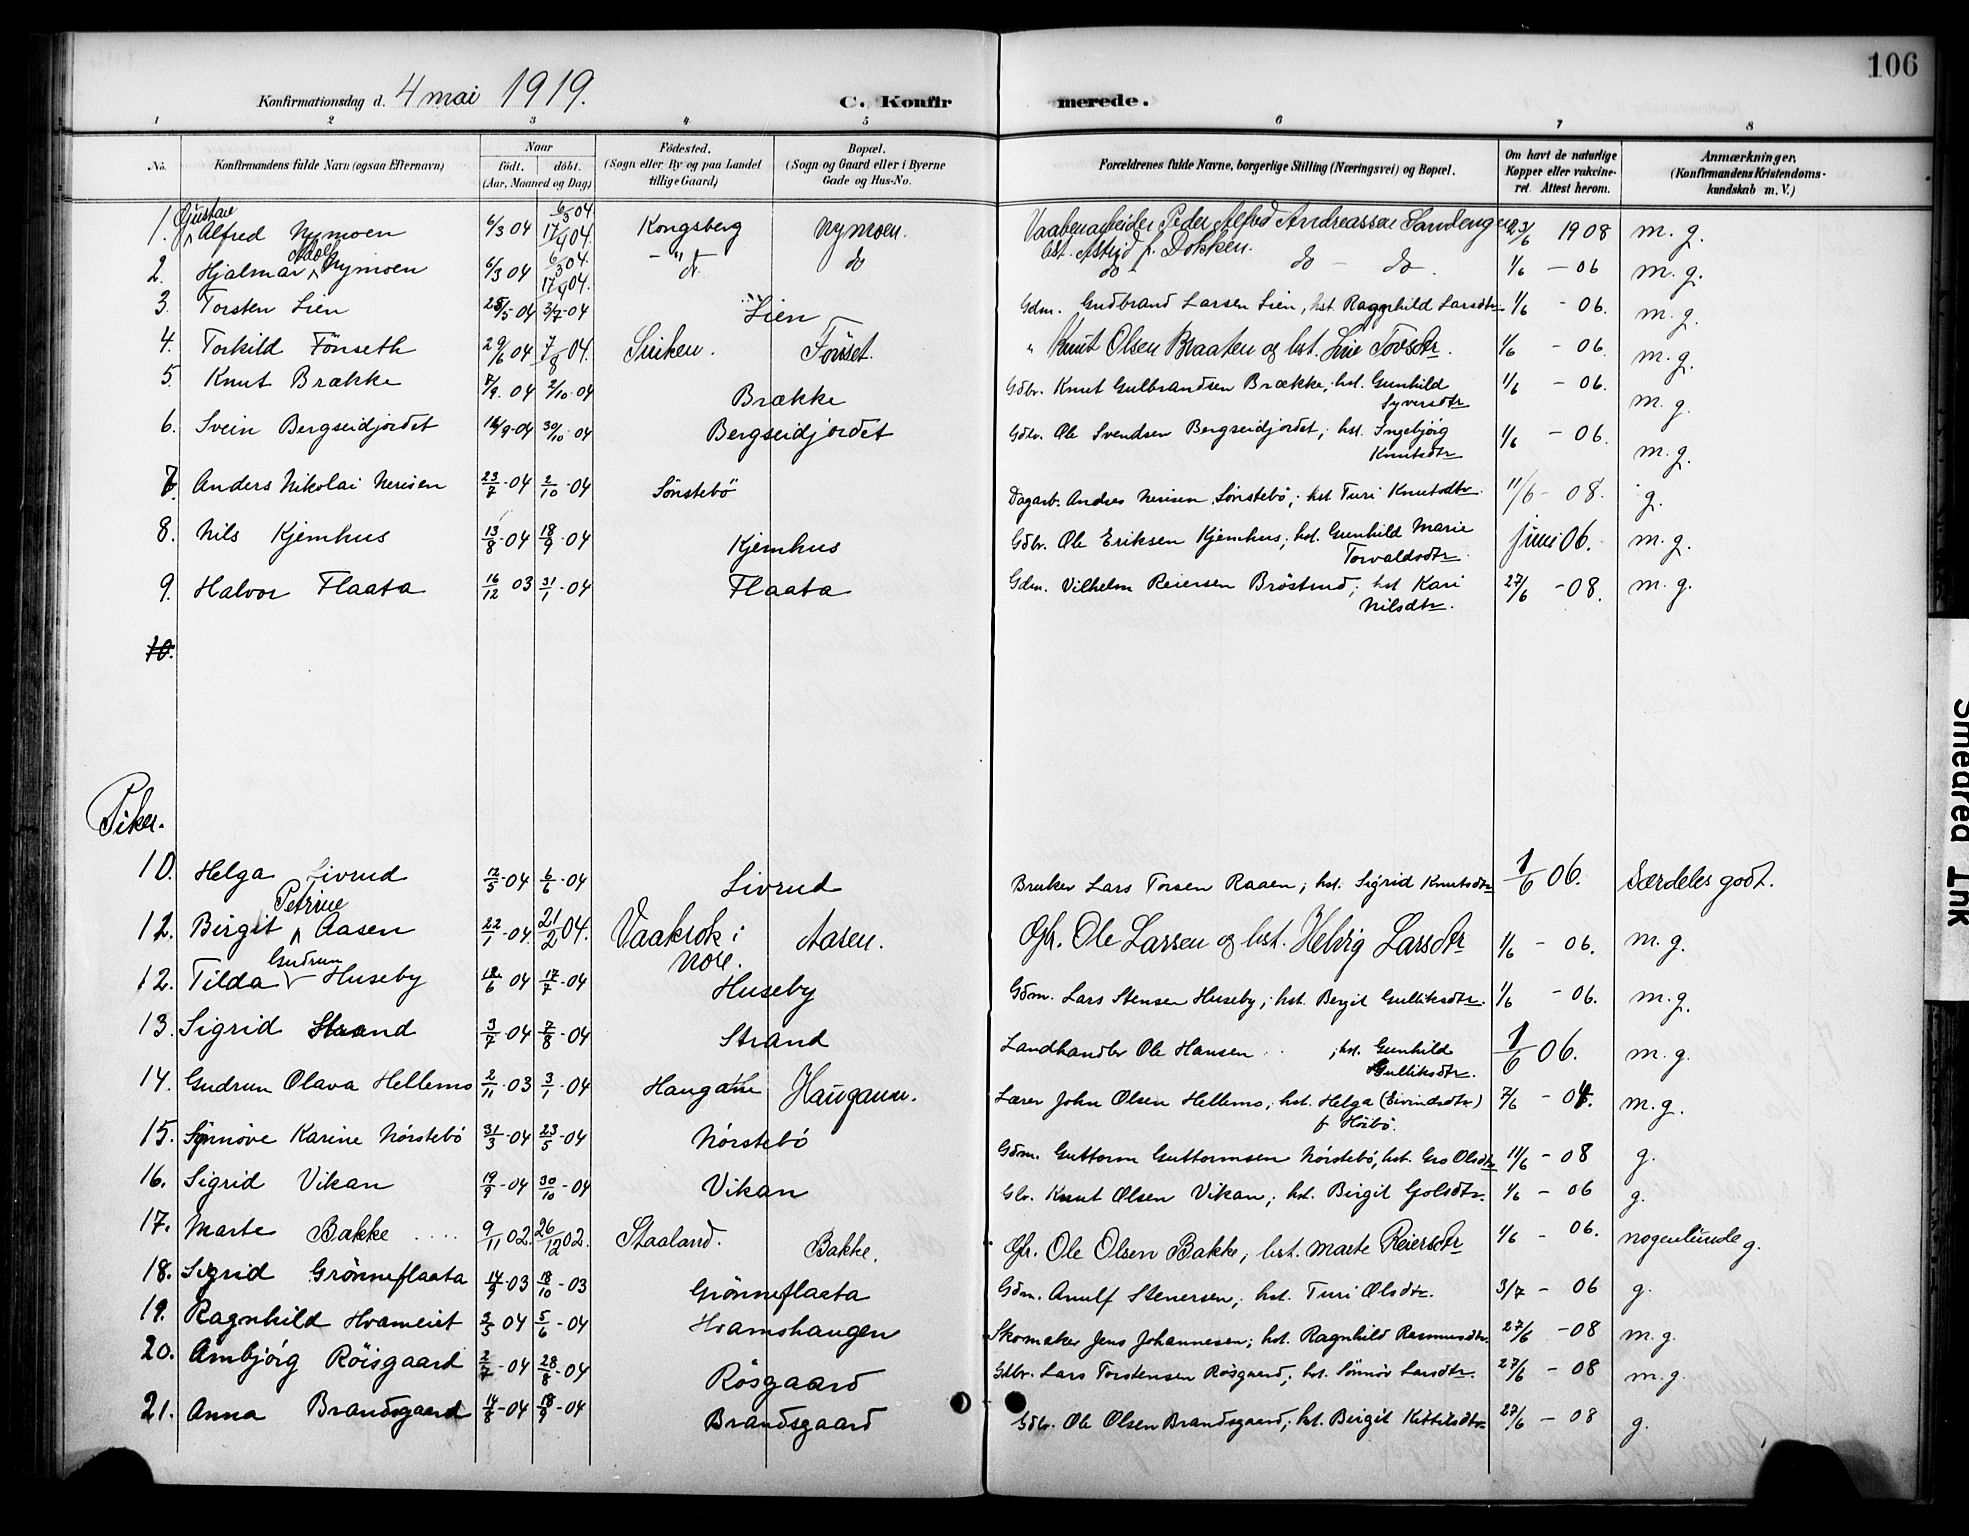 106
Konfirmationsdag d. 4 mai 1919.
C. Konfirmerede.
1 2 3 4 5 6 7 8
No. Konfirmandens fulde Navn (ogsaa Efternavn) Naar født. døbt. (Aar, Maaned og Dag) Fødested. (Sogn eller By og paa Landet tillige Gaard) Bopæl. (Sogn og Gaard eller i Byerne Gade og Hus-No. Forældrenes fulde Navne, borgerlige Stilling (Næringsvei) og Bopæl. Om havt de naturlige Kopper eller vakcineret. Attest herom. Anmærkninger, (Konfirmandens Kristendomskundskab m. V.)
1. Gustav Alfred Nymoen 6/3 04 6/3 04 17/4 04 Kongsberg Nymoen. Vaabenarbeider Peder Alfred Andreassen Sandengen 23/6 1908 m. g.
Astrid f. Dokken.
2. Hjalmar Adolf Nymoen 6/3 04 6/3 04. 17/4 04. - " - do do do - do - 1/6 - 06 m. g.
3. Torsten Lien 28/5 - 04 3/7 - 04 Lien Gdm. Gudbrand Larsen Lien, hst. Ragnhild Larsdtr 1/6 - 06. m. g.
4. Torkild Fönseth 29/6 04 7/8 04. Forset. " Knut Olsen Braaten og hst. Tovsdtr. 1/6 - 06. m. g.
5. Knut Brække 7/9. 04 2/10 - 04 Brække Gdbr. Knut Gulbrandsen Brække, hst. Gunhild 1/6 - 06. m. g.
Syversdtr
6. Svein Bergseidjordet 16/9 - 04 30/10 - 04 Bergseidjordet Gdbr. Ole Svendsen Bergseidjordet, hst. Ingebjørg 1/6 - 06. m. g.
Knutsdtr
7. Anders Nikolai Nerisen 23/7 - 04 2/10 - 04 Sönstebö Dagarb. Andres Nerisen Sönstebö, hst Turi Knutsdtr. 11/6 - 08. g.
8. Nils Kjemhus 13/8 - 04 18/9 - 04 Kjemhus Gdbr. Ole Eriksen Kjemhus, hst. Gunhild Marie juni 06. m. g.
Torvaldsdtr
9. Halvor Flaata 16/12 03 31/1 - 04 Flaata Gdm. Vilhelm Reiersen Bröstrud, hst Kari 27/6 - 08. m. g.
Nilsdtr.
10.
Piker.
10. Helga Livrud 12/5 - 04 6/6 - 04 Livrud Bruker Lars Torsen Raaen, hst. Sigrid Knutsdtr 1/6 06. Særdeles godt.
12. Birgit Petrine Aasen 22/1 - 04 21/2 04. Nore. Aasen. Gbr. Ole Larsen og hst. Helvig Larsdtr 1/6 - 06. m. g.
12. Tilda Gudrun Huseby 12/6 04 17/7 - 04 Huseby Gdm. Lars Stensen Huseby, hst. Bergit Gulliksdtr. 1/6 - 06. m. g.
13. Sigrid Strand 3/7 - 04 7/8 - 04 Strand Landhandler Ole Hansen, hst. Gunhild 1/6 06. m. g.
Gulliksdtr.
14. Gudrun Olava Hellemo 2/11 - 03 3/1 - 04 Haugann. Lærer John Olsen Hellemo, hst. Helga (Eivindsdtr) 7/6 m. g.
f Höibö.
15. Synnöve Karine Nörstebö 31/3 - 04 23/5 - 04 Nörstebö Gdm. Guttorm Guttormsen Nörstebö, hst. Gro Olsdtr 11/6 - 08 g.
16. Sigrid Vikan 19/9 - 04 30/10 - 04 Vikan Gbr. Knut Olsen Vikan, hst. Birgit Golsdtr. 1/6 - 06 g.
17. Marte Bakke 9/11 02. 26/12 02. Staaland. Bakke. Gbr. Ole Olsen Bakke, hst. Marte Reiersdtr 1/6 - 06. nogenlunde g.
18. Sigrid Grönneflaata 14/9 - 03 18/10 - 03 Grönneflaata Gdm. Arnulf Stenersen, hst. Turi Olsdtr. 3/7 - 06 g.
19. Ragnhild Hvameiet 2/5 04 5/6 - 04 Hvamshaugen Skomaker Jens Johannesen, hst. Ragnhild Rasmusdtr. 27/6 - 08 m. g.
20. Ambjörg Röisgaard 2/7 - 04 28/8 - 04 Rösgaard Gdbr. Lars Torstensen Rösgaard, hst. Sönnöv Larsdtr. 27/6 - 08 m. g.
21. Anna Brandsgaard 14/8 - 04 18/9 - 04 Brandsgaard Gdbr. Ole Olsen Brandsgaard, hst. Birgit Kittilsdtr 27/6 - 08 g.
Smeared Ink